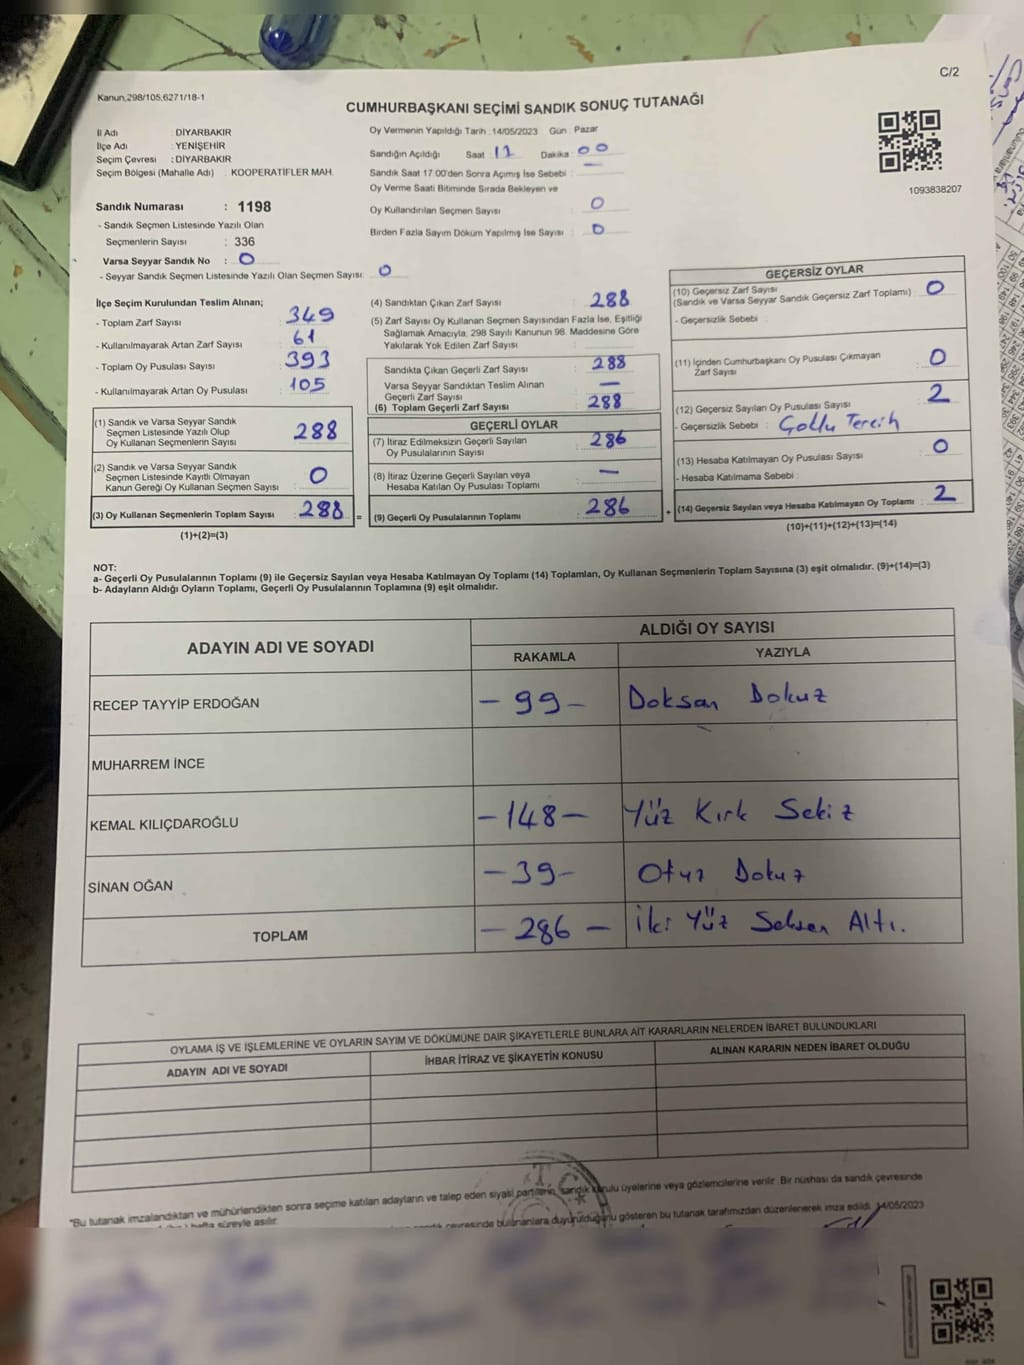 C/2
Kanun,298/105,6271/18-1
CUMHURBAŞKANI SEÇİMİ SANDIK SONUÇ TUTANAĞI
İl Adı : DİYARBAKIR
İlçe Adı : YENİŞEHİR
Seçim Çevresi : DİYARBAKIR
Seçim Bölgesi (Mahalle Adı) : KOOPERATİFLER MAH.
Oy Vermenin Yapıldığı Tarih : 14/05/2023 Gün : Pazar
Sandığın Açıldığı Saat 17 Dakika : 00
Sandık Saat 17:00'den Sonra Açımış İse Sebebi : —
Oy Verme Saati Bitiminde Sırada Bekleyen ve
Oy Kullandırılan Seçmen Sayısı : 0
Birden Fazla Sayım Döküm Yapılmış İse Sayısı : 0
1093838207
Sandık Numarası : 1198
- Sandık Seçmen Listesinde Yazılı Olan
Seçmenlerin Sayısı : 336
Varsa Seyyar Sandık No : 0
- Seyyar Sandık Seçmen Listesinde Yazılı Olan Seçmen Sayısı: 0
İlçe Seçim Kurulundan Teslim Alınan;
- Toplam Zarf Sayısı : 349
- Kullanılmayarak Artan Zarf Sayısı : 61
- Toplam Oy Pusulası Sayısı : 393
- Kullanılmayarak Artan Oy Pusulası : 105
(1) Sandık ve Varsa Seyyar Sandık
Seçmen Listesinde Yazılı Olup
Oy Kullanan Seçmenlerin Sayısı : 288
(2) Sandık ve Varsa Seyyar Sandık
Seçmen Listesinde Kayıtlı Olmayan
Kanun Gereği Oy Kullanan Seçmen Sayısı : 0
(3) Oy Kullanan Seçmenlerin Toplam Sayısı : 288 =
(1)+(2)=(3)
(4) Sandıktan Çıkan Zarf Sayısı : 288
(5) Zarf Sayısı Oy Kullanan Seçmen Sayısından Fazla İse, Eşitliği
Sağlamak Amacıyla, 298 Sayılı Kanunun 98. Maddesine Göre
Yakılarak Yok Edilen Zarf Sayısı :
Sandıkta Çıkan Geçerli Zarf Sayısı : 288
Varsa Seyyar Sandıktan Teslim Alınan
Geçerli Zarf Sayısı : —
(6) Toplam Geçerli Zarf Sayısı : 288
GEÇERLİ OYLAR
(7) İtiraz Edilmeksizin Geçerli Sayılan
Oy Pusulalarının Sayısı : 286
(8) İtiraz Üzerine Geçerli Sayılan veya
Hesaba Katılan Oy Pusulası Toplamı : —
(9) Geçerli Oy Pusulalarının Toplamı : 286 +
GEÇERSİZ OYLAR
(10) Geçersiz Zarf Sayısı
(Sandık ve Varsa Seyyar Sandık Geçersiz Zarf Toplamı) : 0
- Geçersizlik Sebebi :
(11) İçinden Cumhurbaşkanı Oy Pusulası Çıkmayan
Zarf Sayısı : 0
(12) Geçersiz Sayılan Oy Pusulası Sayısı : 2
- Geçersizlik Sebebi : Çoklu Tercih
(13) Hesaba Katılmayan Oy Pusulası Sayısı : 0
- Hesaba Katılmama Sebebi :
(14) Geçersiz Sayılan veya Hesaba Katılmayan Oy Toplamı : 2
(10)+(11)+(12)+(13)=(14)
NOT:
a- Geçerli Oy Pusulalarının Toplamı (9) ile Geçersiz Sayılan veya Hesaba Katılmayan Oy Toplamı (14) Toplamları, Oy Kullanan Seçmenlerin Toplam Sayısına (3) eşit olmalıdır. (9)+(14)=(3)
b- Adayların Aldığı Oyların Toplamı, Geçerli Oy Pusulalarının Toplamına (9) eşit olmalıdır.
ADAYIN ADI VE SOYADI
ALDIĞI OY SAYISI
RAKAMLA YAZIYLA
RECEP TAYYİP ERDOĞAN - 99 - Doksan Dokuz
MUHARREM İNCE
KEMAL KILIÇDAROĞLU - 148 - Yüz Kırk Sekiz
SİNAN OĞAN - 39 - Otuz Dokuz
TOPLAM - 286 - İki Yüz Seksen Altı.
OYLAMA İŞ VE İŞLEMLERİNE VE OYLARIN SAYIM VE DÖKÜMÜNE DAİR ŞİKAYETLERLE BUNLARA AİT KARARLARIN NELERDEN İBARET BULUNDUKLARI
ADAYIN ADI VE SOYADI İHBAR İTİRAZ VE ŞİKAYETİN KONUSU ALINAN KARARIN NEDEN İBARET OLDUĞU
T.C.
*Bu tutanak imzalandıktan ve mühürlendikten sonra seçime katılan adayların ve talep eden siyasi partilerin, sandık kurulu üyelerine veya gözlemcilerine verilir. Bir nüshası da sandık çevresinde
hafta süreyle asılır.
sandık çevresinde bulunanlara duyurulduğunu gösteren bu tutanak tarafımızdan düzenlenerek imza edildi. 14/05/2023